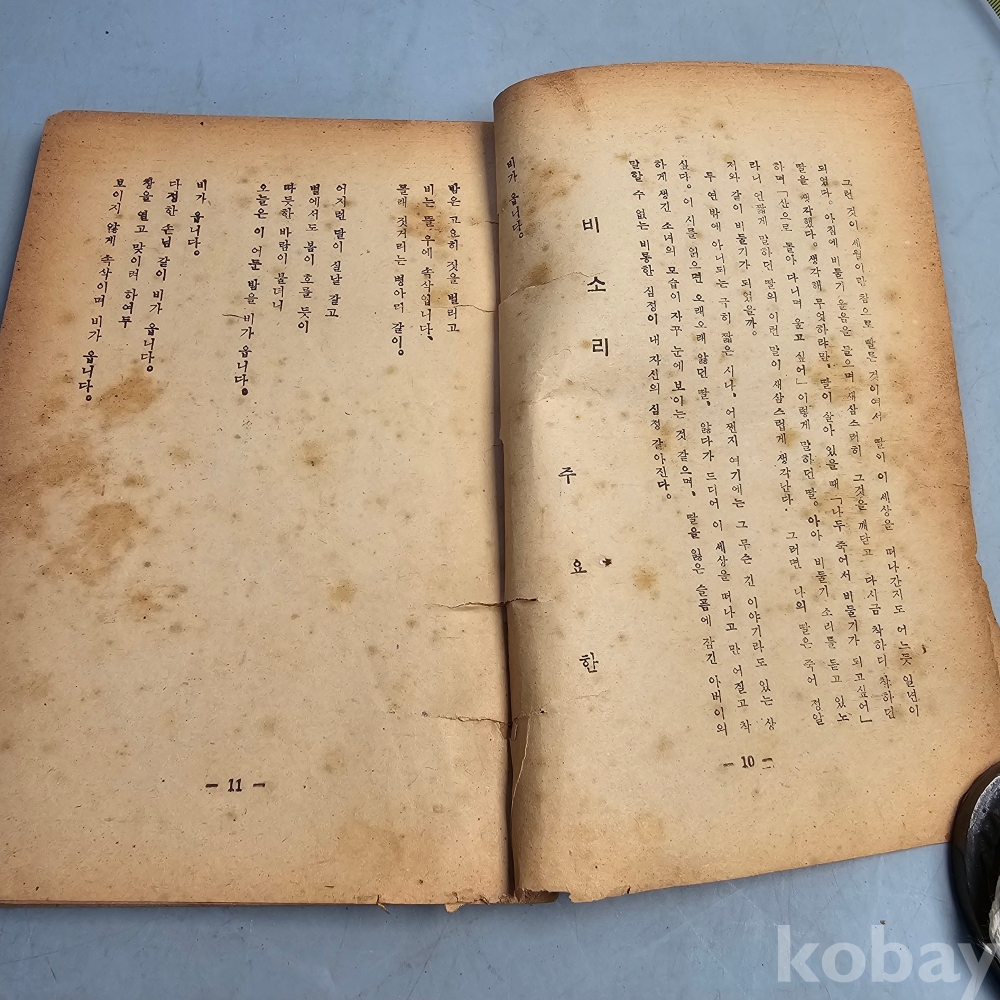 그런 것이 세월이란 참으로 빠른 것이여서 딸이 이 세상을 떠나간지도 어느듯 일년이
되었다. 아침에 비둘기 울음을 들으며 새삼스러히 그것을 깨닫고 다시금 착하디 착하던
딸을 생각했다. 생각해 무엇하랴만, 딸이 살아 있을 때 「나두 죽어서 비둘기가 되고싶어」
하며 「산으로 돌아 다니며 울고 싶어」 이렇게 말하던 딸. 아아 비둘기 소리를 듣고 있노
라니 연짧게 말하던 딸의 이런 말이 새삼스럽게 생각난다. 그러면 나의 딸은 죽어 정말
저와 같이 비둘기가 되었을까.
두 연 밖에 아니되는 극히 짧은 시나, 어쩐지 여기에는 그 무슨 긴 이야기라도 있는 상
싶다. 이 시를 읽으면 오래오래 앓던 딸, 앓다가 드디어 이 세상을 떠나고 만 어질고 착
하게 생긴 소녀의 모습이 자꾸 눈에 보이는 것 같으며, 딸을 잃은 슬픔에 잠긴 아버이의
말할 수 없는 비통한 심정이 내 자신의 심정 같아진다.
비 소 리
주 요 한
비가 옵니다.
— 10 —
밤은 고요히 짓을 벌리고
비는 뜰 우에 속삭입니다,
몰래 짓거리는 병아리 같이.
어지런 달이 실낱 같고
별에서도 봄이 흐를 듯이
따뜻한 바람이 불더니
오늘은 이 어둔 밤을 비가 옵니다.
비가 옵니다.
다정한 손님 같이 비가 옵니다.
창을 열고 맞이려 하여두
보이지 않게 속삭이며 비가 옵니다.
— 11 —
kobay